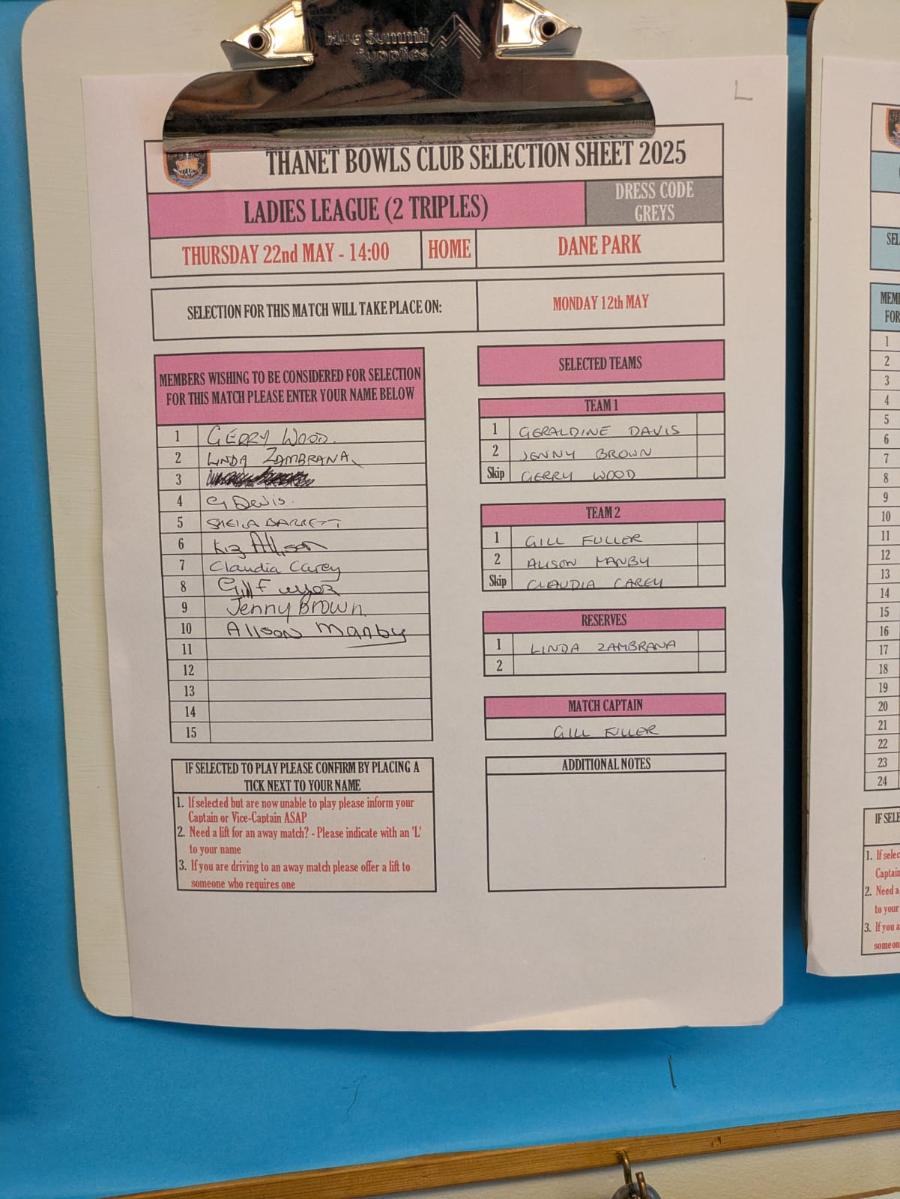 Blue Summit
Supplies
L
THANET BOWLS CLUB SELECTION SHEET 2025
LADIES LEAGUE (2 TRIPLES)
DRESS CODE
GREYS
THURSDAY 22nd MAY - 14:00
HOME
DANE PARK
SELECTION FOR THIS MATCH WILL TAKE PLACE ON:
MONDAY 12th MAY
MEMBERS WISHING TO BE CONSIDERED FOR SELECTION
FOR THIS MATCH PLEASE ENTER YOUR NAME BELOW
1 GERRY WOOD.
2 LINDA ZAMBRANA
3
4 G Davis.
5 SHEILA BARRETT
6 Liz Allison
7 Claudia Carey
8 Gill Fuller
9 Jenny Brown
10 Alison Manby
11
12
13
14
15
SELECTED TEAMS
TEAM 1
1 GERALDINE DAVIS
2 JENNY BROWN
Skip GERRY WOOD
TEAM 2
1 GILL FULLER
2 ALISON MANBY
Skip CLAUDIA CAREY
RESERVES
1 LINDA ZAMBRANA
2
MATCH CAPTAIN
GILL FULLER
IF SELECTED TO PLAY PLEASE CONFIRM BY PLACING A
TICK NEXT TO YOUR NAME
1. If selected but are now unable to play please inform your
Captain or Vice-Captain ASAP
2. Need a lift for an away match? - Please indicate with an 'L'
to your name
3. If you are driving to an away match please offer a lift to
someone who requires one
ADDITIONAL NOTES
SEL
MEM
FOR
1
2
3
4
5
6
7
8
9
10
11
12
13
14
15
16
17
18
19
20
21
22
23
24
IF SELE
1. If selec
Captain
2. Need a
to your
3. If you a
someon